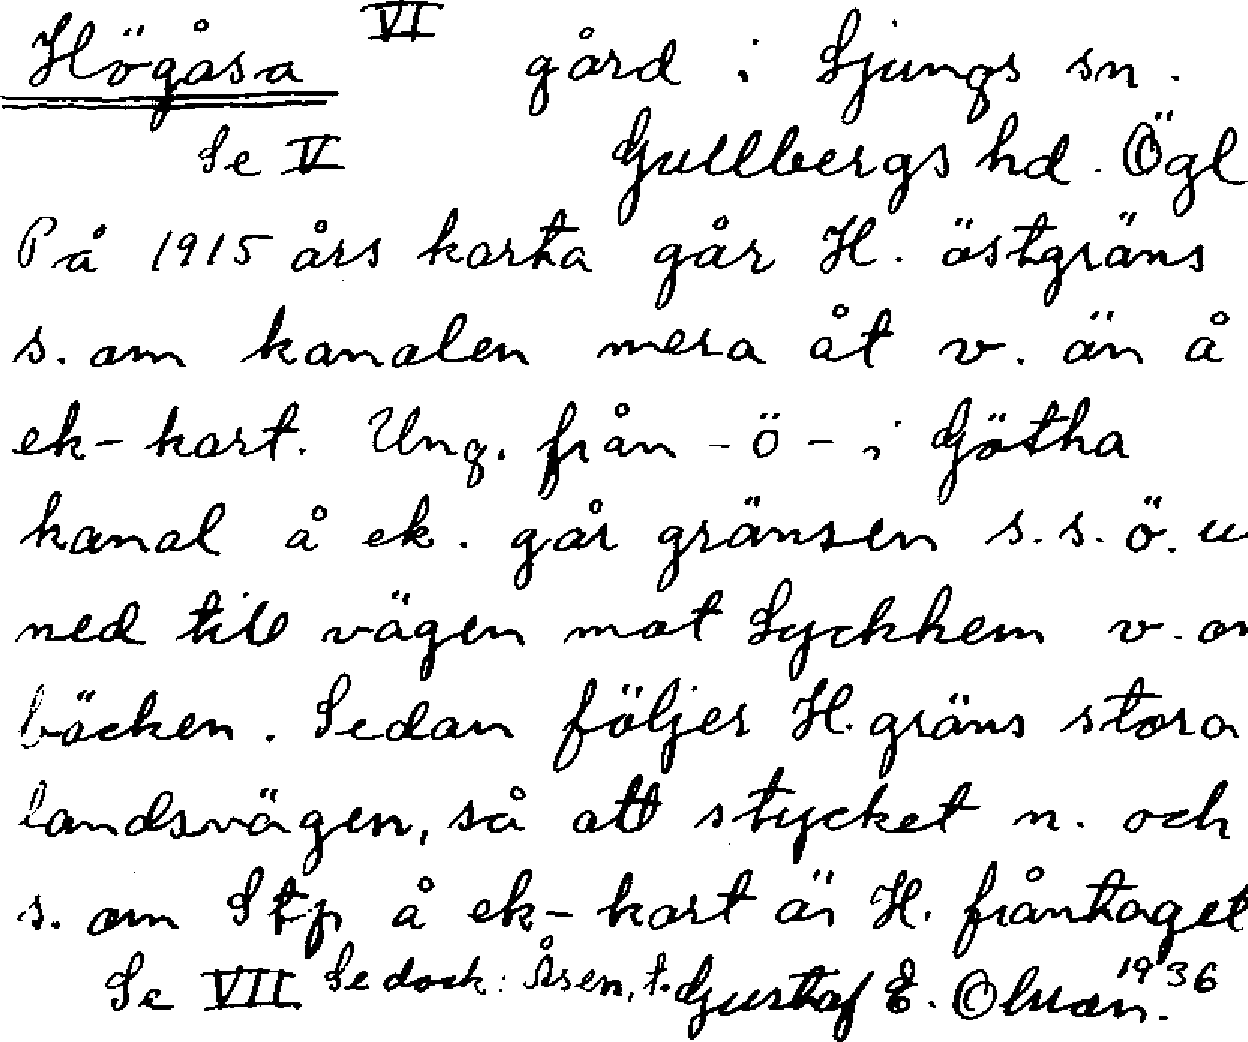 Högåsa VI gård i Ljungs sn.
Se V Gullbergs hd. Ögl
På 1915 års karta går H. östgräns
s. om kanalen mera åt v. än å
ek-kart. Ung. från -ö- i Götha
kanal å ek. går gränsen s.s.ö. u
ned till vägen mot Lyckhem v. om
bäcken. Sedan följer H. gräns stora
landsvägen, så att stycket n. och
s. om Stp å ek-kart är H. fråntaget
Se VII Se dock: Åsen, t. Gustaf E. Olson. 1936